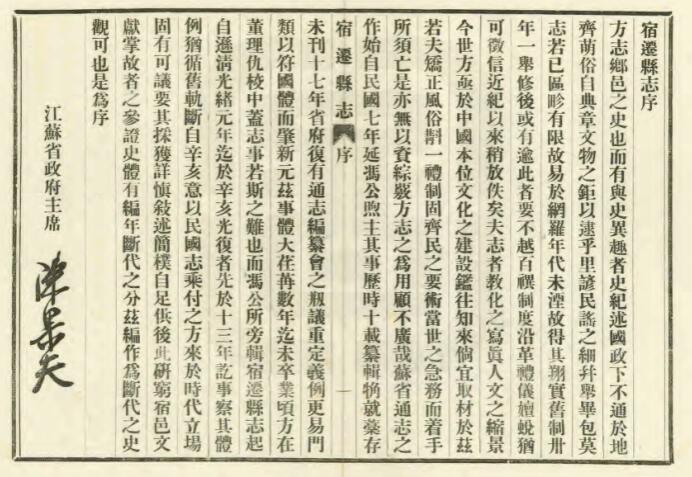 宿遷縣志序
方志鄉邑之史也而有與史異趣者史紀述國政下不通於地
齊萌俗自典章文物之鉅以逮乎里諺民謠之細幷舉畢包莫
志若已區畛有限故易於網羅年代未湮故得其翔實舊制卅
年一舉修後或有逾此者要不越百禩制度沿革禮儀嬗蛻猶
可徵信近紀以來稍放佚矣夫志者教化之寫眞人文之縮景
今世方亟於中國本位文化之建設鑑往知來倘宜取材於茲
若夫矯正風俗斠一禮制固齊民之要術當世之急務而着手
所須亡是亦無以資綜覈方志之爲用顧不廣哉蘇省通志之
作始自民國七年延馮公煦主其事歷時十載纂輯牣就藁存
宿遷縣志 序 一
未刊十七年省府復有通志編纂會之剙議重定義例更易門
類以符國體而肇新元茲事體大荏苒數年迄未卒業頃方在
董理仇校中蓋志事若斯之難也而馮公所旁輯宿遷縣志起
自遜清光緒元年迄於辛亥光復者先於十三年訖事察其體
例猶循舊軌斷自辛亥意以民國志乘付之方來於時代立場
固有可議要其採獲詳愼敍述簡樸自足供後此硏窮宿邑文
獻掌故者之參證史體有編年斷代之分茲編作爲斷代之史
觀可也是爲序
江蘇省政府主席
陳果夫